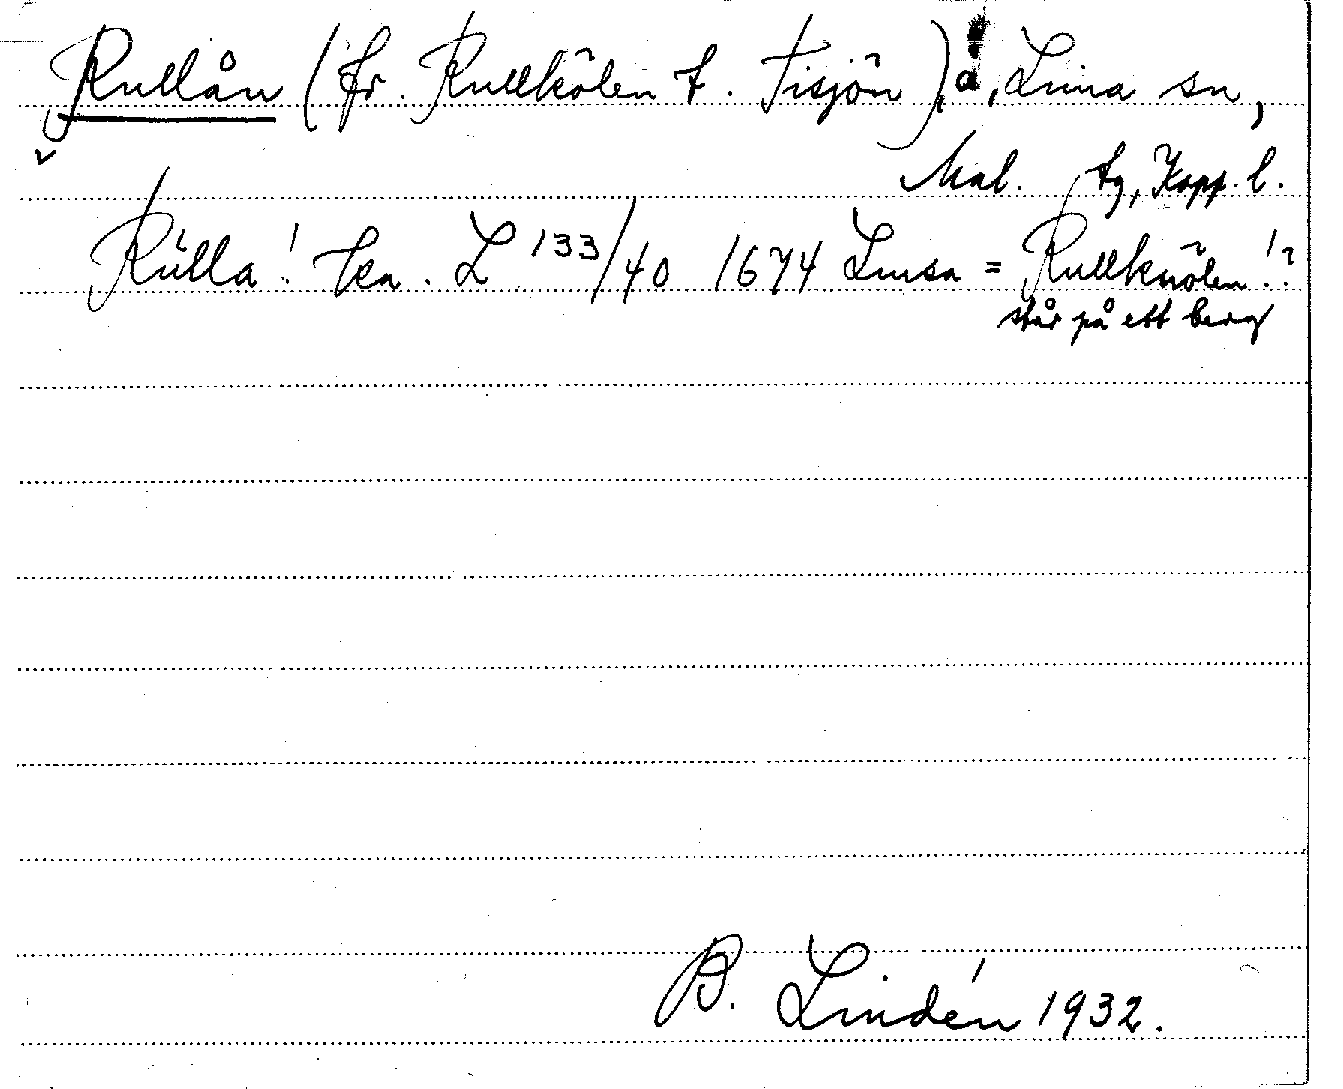 Rullån (fr. Rullkölen t. Tisjön), å, Lima sn,
Mal. tg, Kopp. l.
Rulla! ka. L 133/40 1674 Limsa = Rullknölen!?
står på ett berg
B. Lindén 1932.